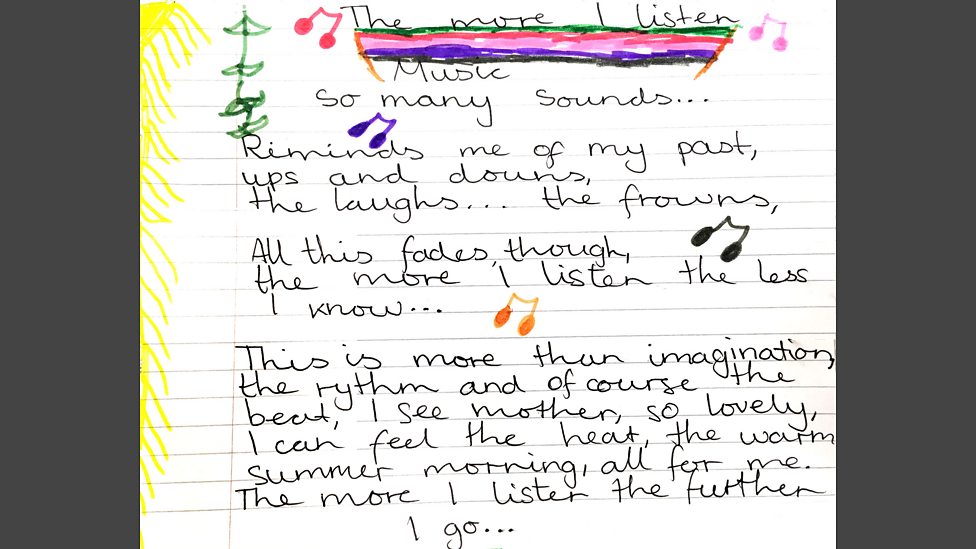 The more I listen
Music
So many sounds...
Reminds me of my past,
ups and downs,
the laughs... the frowns,
All this fades, though,
the more I listen the less
I know...
This is more than imagination,
the rythm and of course the
beat, I see mother, so lovely,
I can feel the heat, the warm
summer morning, all for me.
The more I listen the further
I go...